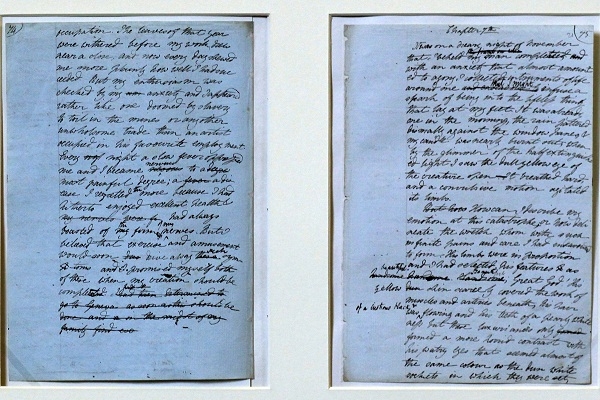 occupation. The leaves of that year
were withered before my work drew
near a close, and now every day shewed
me more plainly how well I had suc
ceeded But my enthusiasm was
checked by my anxiety and I appeared
rather like one doomed by slavery
to toil in the mines or any other
unwholsome trade than an artist
occupied in his favourite employment.
Every night a slow fever oppressed
me and I became nervous to a
most painful degree; a
ease I regretted the more because I had
hitherto enjoyed excellent health &
had always
boasted of the firmness of my nerves. But I
beleived that exercise and amusement
would soon drive away such symp
toms and I promised myself both
of these when my creation should be
completed
Chapter 7th
75
It was on a dreary night of November
that I beheld my man completed and
with an anxiety that almost amount
ed to agony I collected instruments of life
around me that I might infuse a
spark of being into the lifeless thing
that lay at my feet. It was already
one in the morning, the rain pattered
dismally against the window panes &
my candle was nearly burnt out, when
by the glimmer of the half extinguish
ed light I saw the dull yellow eye of
the creature open. It breathed hard,
and a convulsive motion agitated
its limbs.
But how How can I describe my
emotion at this catastrophe, or how deli
neate the wretch whom with such
infinite pains and care I had endeavoured
to form. His limbs were in proportion
and I had selected his features as
beautiful
handsome
Great God! His
yellow skin scarcely covered the work of
muscles and arteries beneath; his hair
of a lustrous black &
was flowing and his teeth of a pearly white
ness but these luxuriances only
formed a more horrid contrast with
his watry eyes that seemed almost of
the same colour as the dun white
sockets in which they were set,